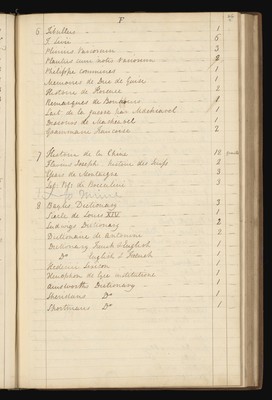 F.
6 Tibullus 1
T. Livii 6
Plinius Panorum 3
Plautus cum notis Variorum
Philippe comminas 1
Memoires de Duc de Guise 1
Histoire de Florence 2
Remarques de 1
L'art de la guerre par Machiavel 1
Discours de Machiavel 1
Grammaire Francoise 2
7 Histoire de la Chine 12
Flavius Joseph histoire des Juifs 2
Essais de Montaigne 3
3
8 Bayles Dictionary 3
Siecle de Louis XIV 1
Ludwigs Dictionary 2
Dictionaire de Antonini 2
Dictionary French & English 1
Do English & French 1
Hederici Lexicon 1
Xenophon de Cyri institutione 1
Ainsworths Dictionary 1
Sheridans Do 1
Do 1